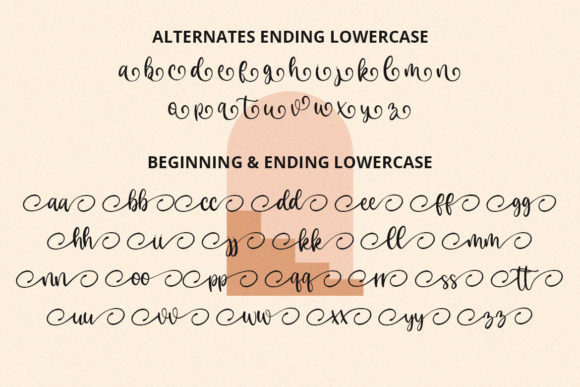 ALTERNATES ENDING LOWERCASE
a b c d e f g h i j k l m n
o p q t u v w x y z
BEGINNING & ENDING LOWERCASE
aa bb cc dd ee ff gg
hh ii jj kk ll mm
nn oo pp qq rr ss tt
uu vv ww xx yy zz